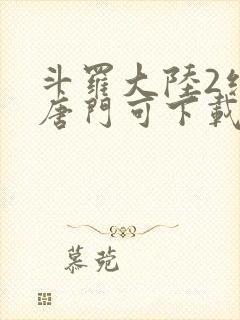 斗羅大陸2
唐門可下載
慕菀